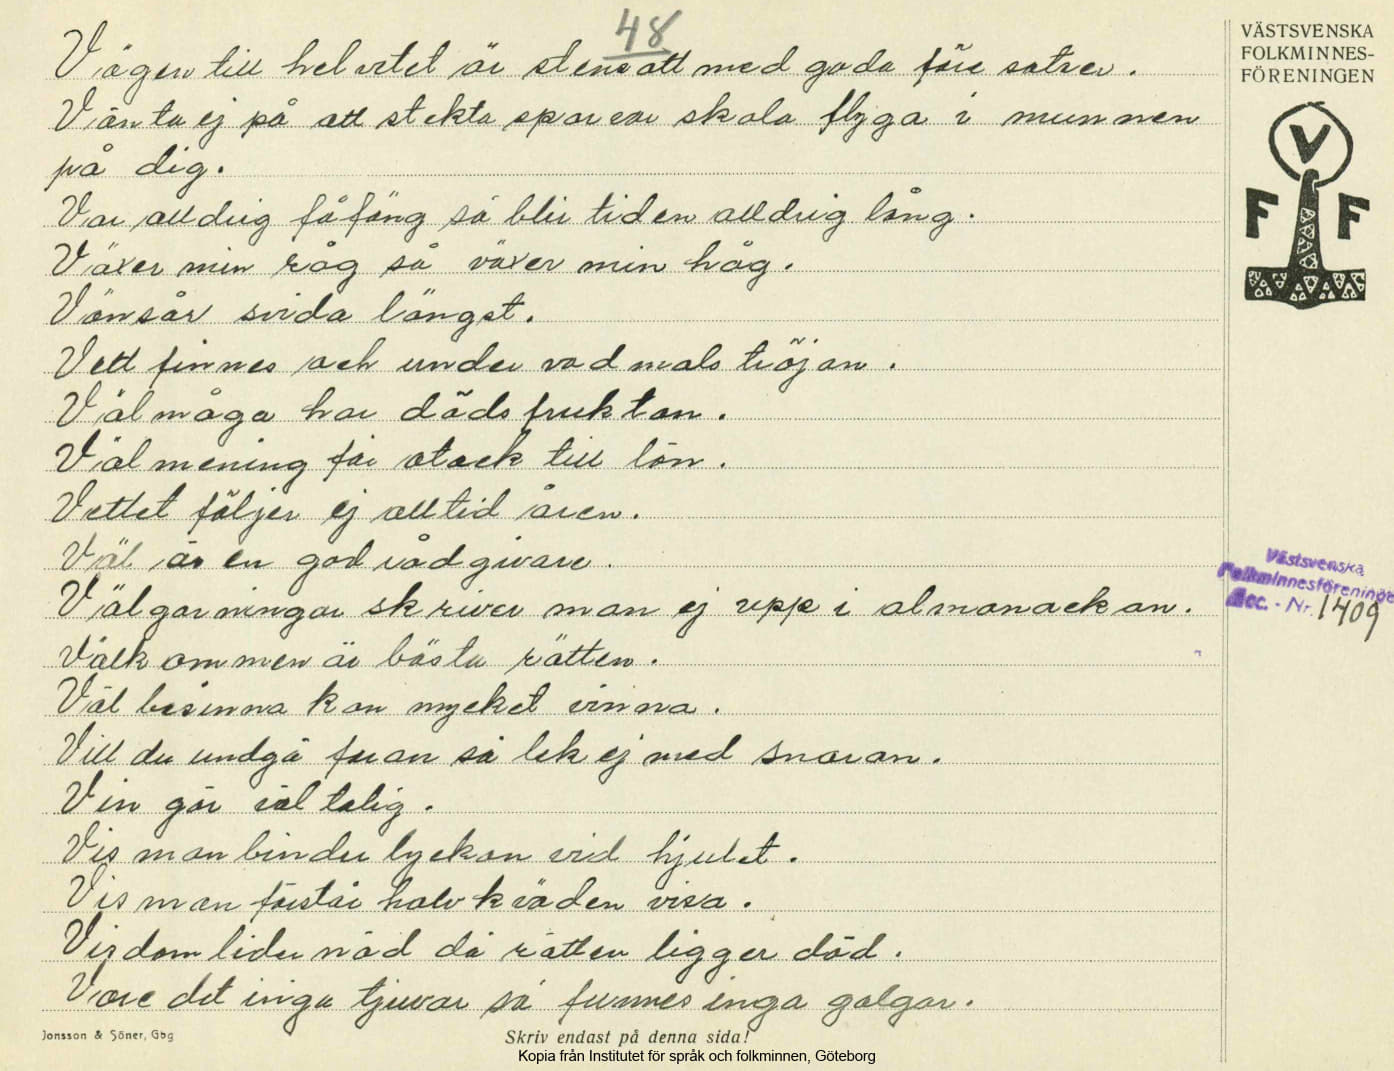 48
Vägen till helvetet är stensatt med goda före satser.
Vänta ej på att stekta sparvar skola flyga i munnen
på dig.
Var alldrig fåfäng så blir tiden alldrig lång.
Växer min råg så växer min håg.
Vänsår svida längst.
Vett finnes och under vadmals tröjan.
Välmåga har dödsfruktan.
Välmening får otack till lön.
Vettet följer ej alltid åren.
Väl är en god rådgivare.
Välgärningar skriver man ej upp i almanackan.
Välkommen är bästa rätten.
Väl besinna kan mycket vinna.
Vill du undgå faran så lek ej med snaran.
Vin gör vältalig.
Vis man binder lyckan vid hjulet.
Vis man förstår halvkväden visa.
Visdom lider nöd då rätten ligger död.
Vore det inga tjuvar så funnes inga galgar.
Jonsson & Söner, Gbg
Skriv endast på denna sida!
Kopia från Institutet för språk och folkminnen, Göteborg
VÄSTSVENSKA
FOLKMINNES-
FÖRENINGEN
V
F F
Västsvenska
Folkminnesföreningen
Acc. - Nr. 1409